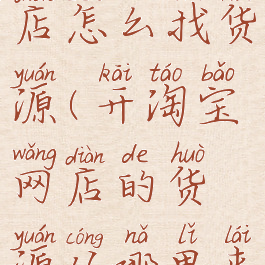 店怎么找货
yuán kāi táo bǎo
源(开淘宝
wǎng diàn de huò
网店的货
yuán cóng nǎ lǐ lái
源从哪里来